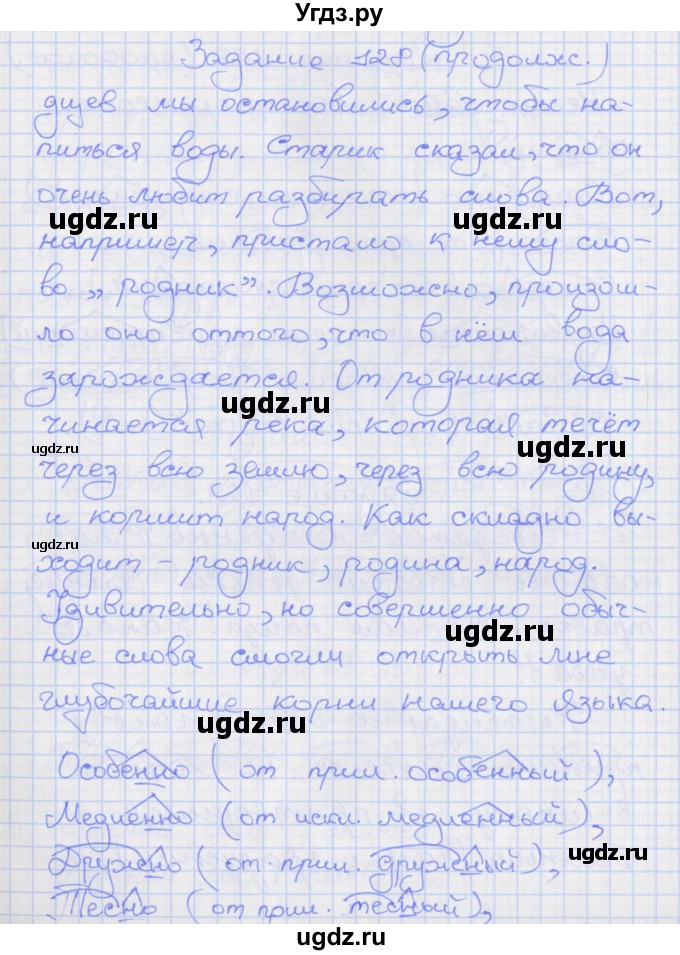 Угдз.ру
Задание 128 (продолж.)
дцев мы остановились, чтобы на-
питься воды. Старик сказал, что он
очень любит разбирать слова. Вот,
ugdz.ru ugdz.ru
например, пристало к нему сло-
во „родник”. Возможно, произош-
ло оно оттого, что в нём вода
зарождается. От родника на-
ugdz.ru
чинается река, которая течёт
ugdz.ru ugdz.ru
через всю землю, через всю родину,
и кормит народ. Как складно вы-
ugdz.ru
ходит – родник, родина, народ.
Удивительно, но совершенно обыч-
ugdz.ru
ные слова смогли открыть мне
глубочайшие корни нашего языка.
ugdz.ru
Особенно (от прил. особенный),
Медленно (от искл. медленный),
Дружно (от прил. дружный),
ugdz.ru
Тесно (от прил. тесный),
ugdz.ru